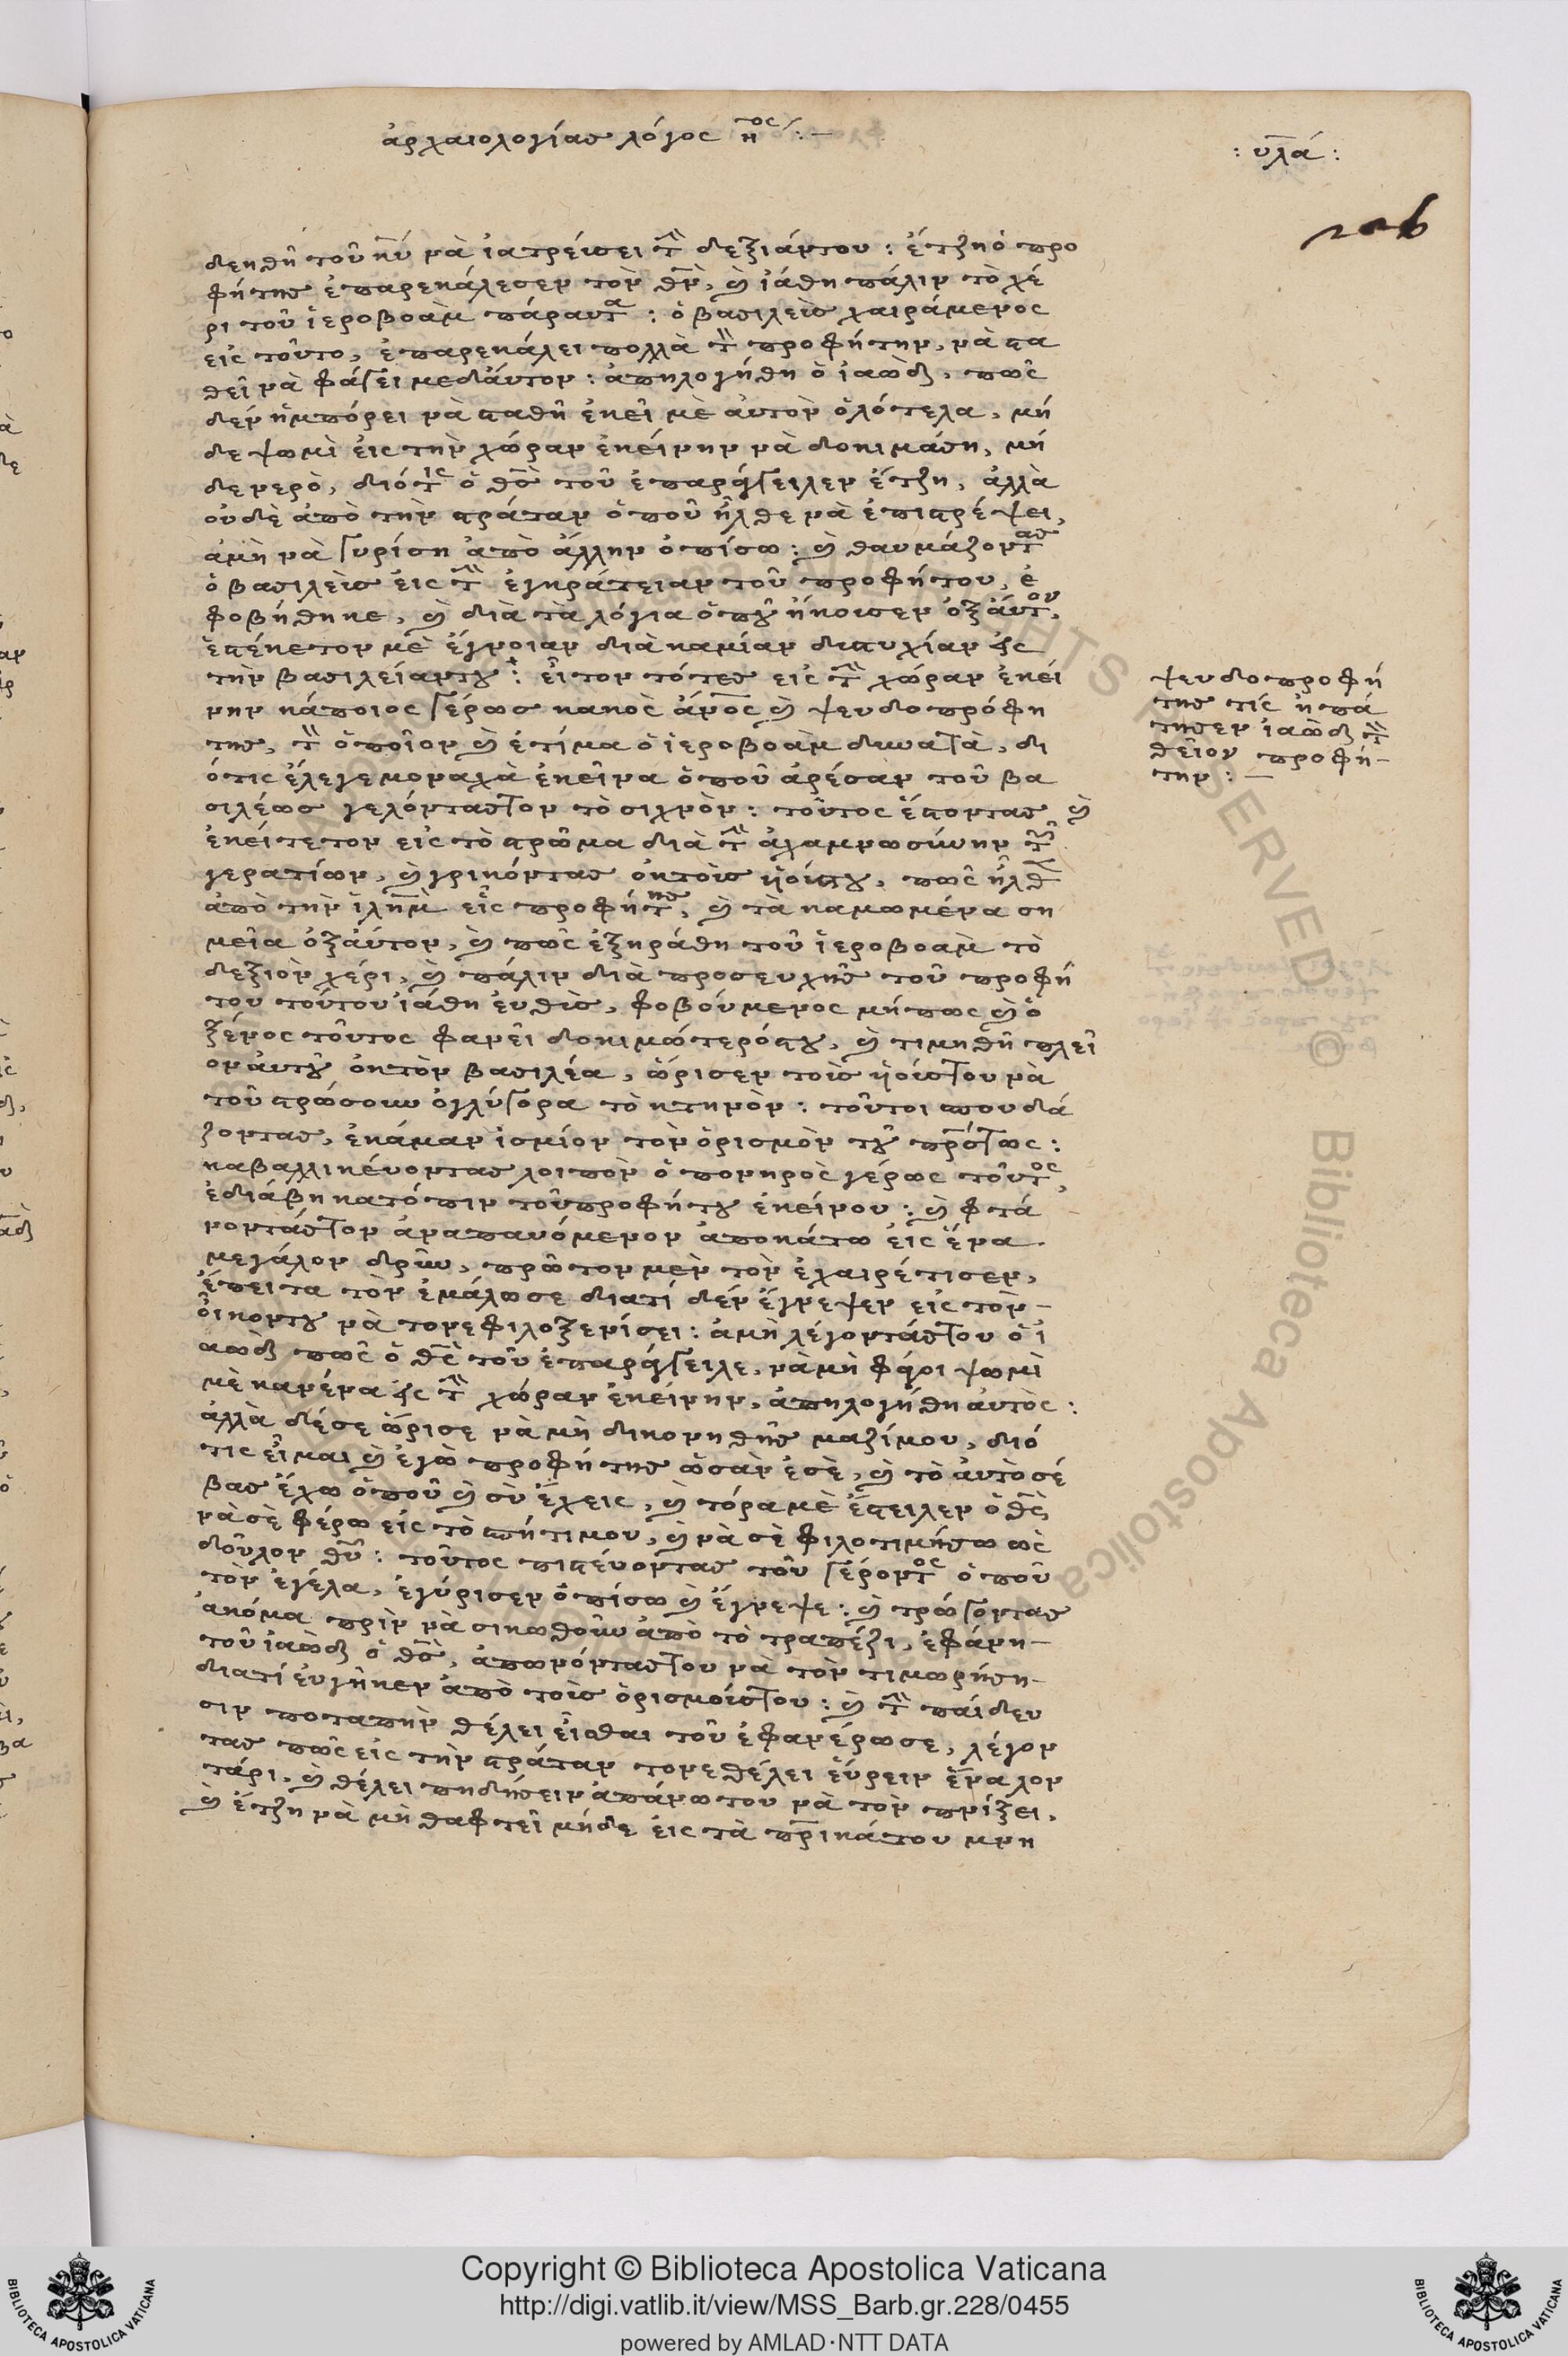 ἀρχαιολογίας λόγος η^ος :—
: υλά :
226
δεηθῆ τοῦ θῦ νὰ ἰατρεύσει τὴ δεξιάντου : ἔτζη ὁ προ
φήτης ἐπαρεκάλεσεν τὸν θν̀, ϗ ἰάθη πάλιν τὸ χέ
ρι τοῦ ἱεροβοὰμ πάραυτα : ὁ βασιλεὺς χαιράμενος
εἰς τοῦτο, ἐπαρεκάλει πολλὰ τὸν προφήτην, νὰ στα
θεῖ νὰ φάγει μεδάυτον : ἀπηλογήθη ὁ ἰαὼδ, πῶς
δὲν ἠμπόρει νὰ σταθῆ ἐκεῖ μὲ ἀυτὸν ὁλότελα, μή
δε ψωμὶ εἰς τὴν χώραν ἐκείνην νὰ δοκιμάση, μή
δε νερὸ, διότις ὁ θς̀ τοῦ ἐπαράγγειλεν ἔτζη, ἀλλὰ
ουδὲ ἀπὸ τὴν στράταν ὁποῦ ἦλθε νὰ ἐπιστρέψει,
ἀμὴ νὰ γυρίση ἀπὸ ἄλλην ὀπίσω : ϗ θαυμάζοντας
ὁ βασιλεὺς εἰς τὴν ἐγκράτειαν τοῦ προφήτου, ἐ
φοβήθηκε, ϗ διὰ τὰ λόγια ὁποῦ ἤκουσεν ὀξ ἀυτον,
ἐστέκετον μὲ ἔγνοιαν διὰ καμίαν δυστυχίαν εἰς
τὴν βασιλείαντου : εἶτον τότες εἰς τὴν χώραν ἐκεί
νην κάποιος γέρως κακὸς ἄνος ϗ ψευδοπρόφη
της, τὸν ὁποῖον ϗ ἐτίμα ὁ ἱεροβοὰμ δυνατὰ, δι
ότις ἔλεγε μοναχὰ ἐκεῖνα ὁποῦ ἀρέσαν τοῦ βα
σιλέως γελόντας τον τὸ συχνὸν : τοῦτος ἔστοντας ϗ
ἐκείτετον εἰς τὸ στρῶμα διὰ τὴν ἀχαμνωσύνην τῶν
γερατίων, ϗ γρικόντας ὀκτοὺς ὑούςτου, πῶς ἦλθε
ἀπὸ τὴν ἰλημ̀ εἷς προφήτης, ϗ τὰ καμωμένα ση
μεῖα ὀξ ἀύτον, ϗ πῶς ἐξηράθη τοῦ ἱεροβοὰμ τὸ
δεξιὸν χέρι, ϗ πάλιν διὰ προσευχῆς τοῦ προφή
του τούτου ἰάθη ἐυθὺς, φοβούμενος μήπως ϗ ὁ
ξένος τοῦτος φανεῖ δοκιμώτερόςτου, ϗ τιμηθῆ πλεῖ
ον ἀυτοῦ ὀκτὸν βασιλέα, ὥρισεν τοὺς ὑούςτου νὰ
τοῦ στρώσουν ὀγλύγορα τὸ κτηνὸν : τοῦτοι σπουδά
ζοντας, ἐκάμαν ἰσμίον τὸν ὁρισμὸν τοῦ πρς́τως :
καβαλλικέυοντας λοιπὸν ὁ πονηρὸς γέρως τοῦτος,
ἐδιάβη κατόπιν τοῦ προφήτου ἐκείνου : ϗ φτά
νοντάς τον ἀναπαυόμενον ἀποκάτω εἰς ἕνα
μεγάλον δρῦν, πρῶτον μὲν τὸν ἐχαιρέτισεν,
ἔπειτα τὸν ἐμάλωσε διατί δὲν ἔγνεψεν εἰς τὸν
οἶκοντου νὰ τονε φιλοξενίσει : ἀμὴ λέγοντάς του ὁ ἰ
αὼδ πῶς ὁ θς̀ τοῦ ἐπαράγγειλε, νὰ μὴ φάγοι ψωμὶ
μὲ κανένα εἰς τὴν χώραν ἐκείνην, ἀπηλογήθη ἀυτὸς :
ἀλλὰ δέσε ὥρισε νὰ μὴ δικονηθῆς μαζίμου, διό
τις εἶμαι ϗ ἐγὼ προφήτης ὡσὰν ἐσὲ, ϗ τὸ ἀυτὸ σέ
βας ἔχω ὁποῦ ϗ σὺ ἔχεις, ϗ τόρα μὲ ἔστειλεν ὁ θς̀
νὰ σὲ φέρω εἰς τὸ σπήτιμου, ϗ νὰ σὲ φιλοτιμήσω ὡς
δοῦλον θῦ : τοῦτος πιστέυοντας τοῦ γέροντος ὁποῦ
τὸν ἐγέλα, ἐγύρισεν ὀπίσω ϗ ἔγνεψε : ϗ τρώγοντας
ἀκόμα πρὶν νὰ σικωθοῦν ἀπὸ τὸ τραπέζι, ἐφάνη
τοῦ ἰαὼδ ὁ θς̀, ἀπονόντας του νὰ τὸν τιμωρήση
διατί ἐυγῆκεν ἀπὸ τοὺς ὁρισμούς του : ϗ τὴν παίδευ
σιν ποταπὴν θέλει εἶσθαι τοῦ ἐφανέρωσε, λέγον
τας πῶς εἰς τὴν στράταν τονε θέλει ἕυρειν ἕνα λον
τάρι, ϗ θέλει πηδήσειν ἀπάνω του νὰ τὸν πνίξει,
ϗ ἔτζη νὰ μὴ θαφτεῖ μήδε εἰς τὰ πρικάτου μνη
ψευδοπροφή
της τίς ἠπά
τησεν ἰαὼδ τὸν
θεῖον προφή-
την : —
Copyright © Biblioteca Apostolica Vaticana
http://digi.vatlib.it/view/MSS_Barb.gr.228/0455
powered by AMLAD·NTT DATA
BIBLIOTECA APOSTOLICA VATICANA
BIBLIOTECA APOSTOLICA VATICANA